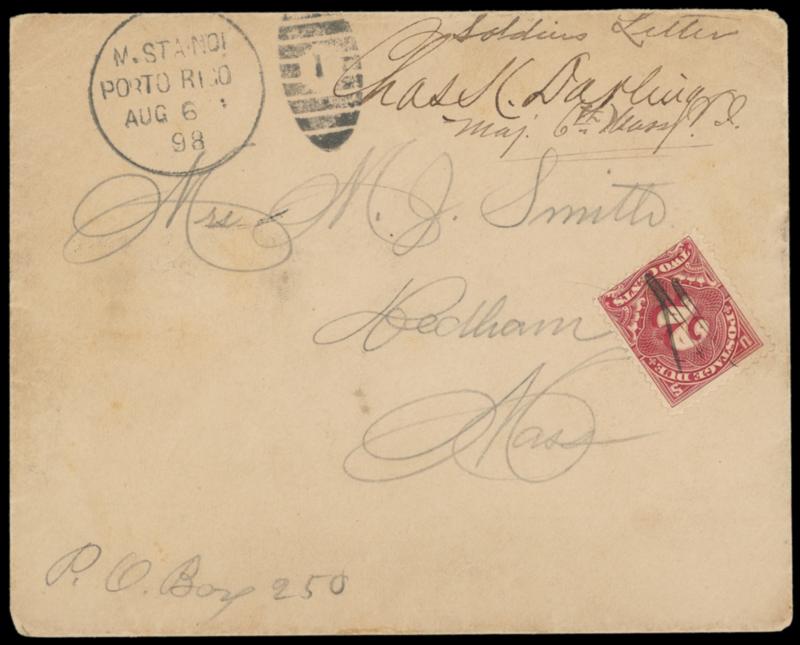 M. STA. NO 1
PORTO RICO
AUG 6
98
1
Soldiers Letter
Chas K. Darling
Maj. 6th Mass. V. I.
Mrs M. J. Smith
Dedham
Mass
P. O. Box 250
TWO CENTS
2
U S
POSTAGE DUE